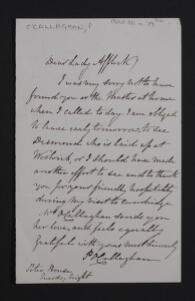 O'CALLAGHAN, P
Dear Lady Affleck
I was very sorry not to have
found you or the Master at home
when I called today. I am obliged
to leave early tomorrow to see
Desmond who is laid up at
or I should have made
another effort to see and to thank
you for your friendly hospitality
during my visit to Cambridge
Mrs O'Callaghan sends you
her love, and feels equally
grateful with yours most sincerely
P O'Callaghan
Tuesday night